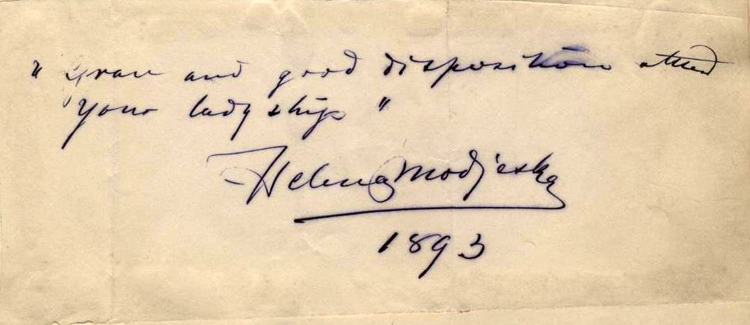 " Grace and good disposition attend
your ladyship "
Helena Modjeska
1893